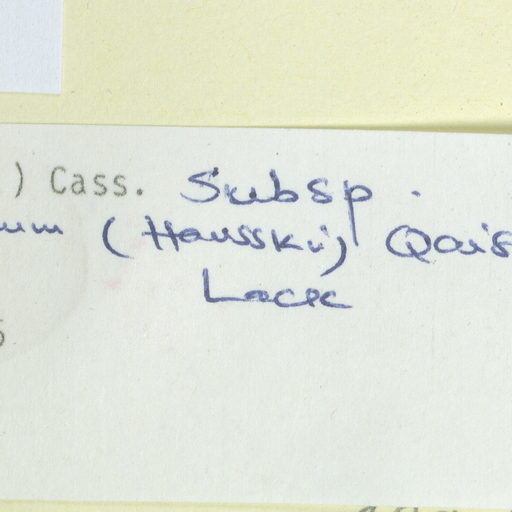 ) Cass. Subsp.
um (Hausskn) Qais
Lack